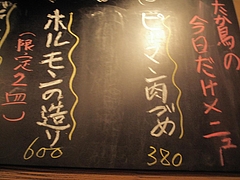 たか鳥の
今日だけメニュー
ピーマン肉づめ
380
ホルモンの造り
(限定2皿)
600